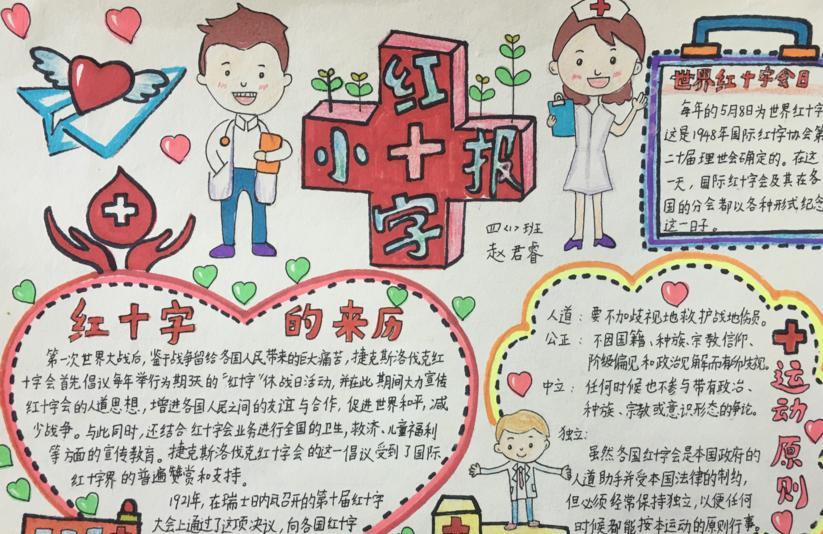 红十字小报
四(1)班
赵君睿
世界红十字会日
每年的5月8日为世界红十字
这是1948年国际红十字协会第
二十届理世会确定的。在这
一天，国际红十字会及其在各
国的分会都以各种形式纪念
这一日子。
红十字的来历
第一次世界大战后，鉴于战争留给各国人民带来的巨大痛苦，捷克斯洛伐克红
十字会首先倡议每年举行为期3天的“红十字”休战日活动，并在此期间大力宣传
红十字会的人道思想，增进各国人民之间的友谊与合作，促进世界和平，减
少战争。与此同时，还结合红十字会业务进行全国的卫生，救济、儿童福利
等方面的宣传教育。捷克斯洛伐克红十字会的这一倡议受到了国际
红十字界的普遍赞赏和支持。
1921年，在瑞士日内瓦召开的第十届红十字
大会上通过了这项决议，向各国红十字
运动原则
人道：要不加歧视地救护战地伤员。
公正：不因国籍、种族、宗教信仰、
阶级偏见和政治见解而有所歧视。
中立：任何时候也不参与带有政治、
种族、宗教或意识形态的争论。
独立：
虽然各国红十字会是本国政府的
人道助手并受本国法律的制约，
但必须经常保持独立，以便任何
时候都能按本运动的原则行事。